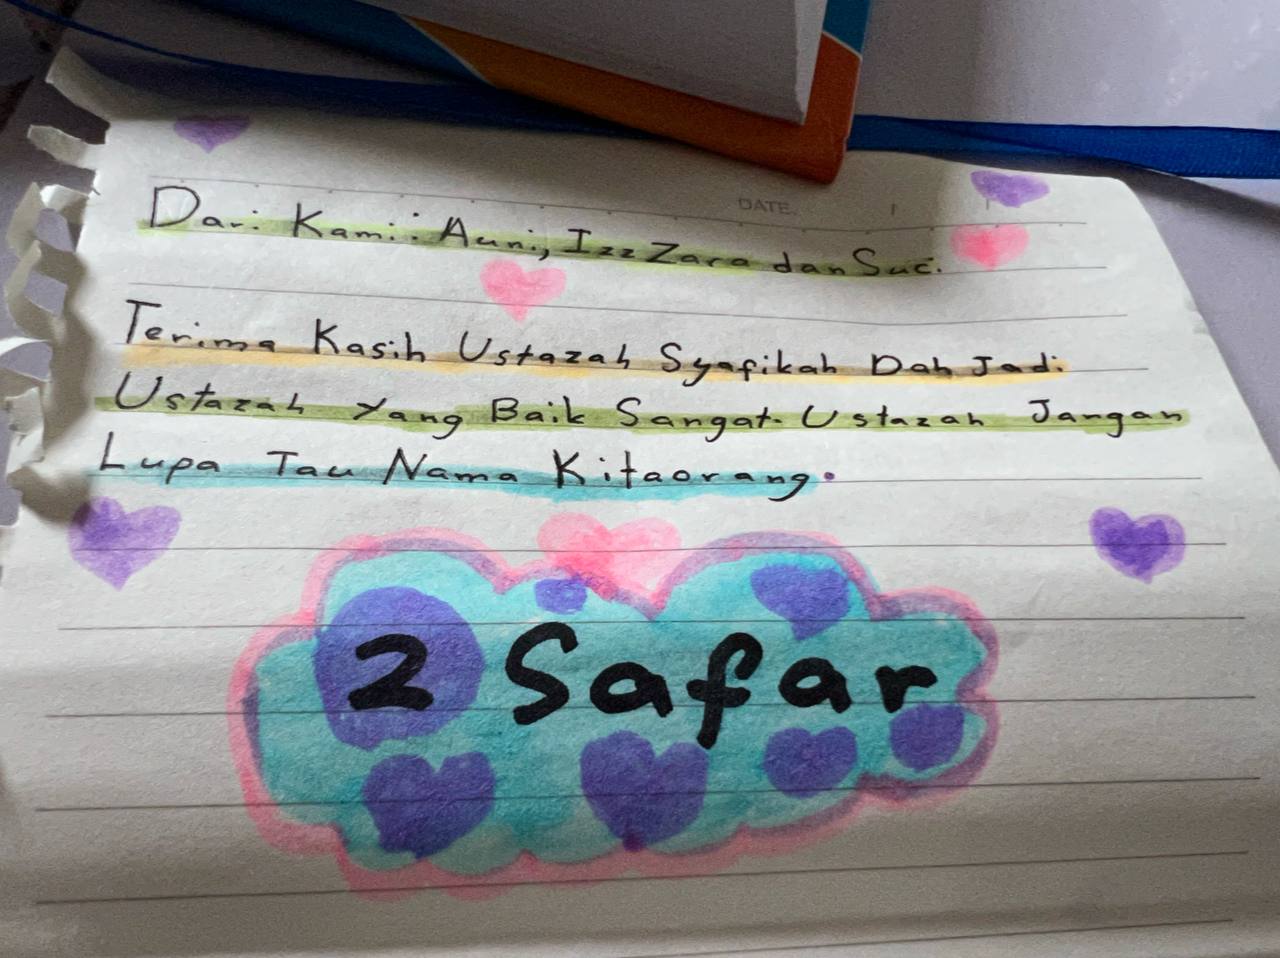 Dari Kami: Auni, Izz Zara dan Suci.
DATE.
Terima Kasih Ustazah Syafikah Dah Jadi
Ustazah Yang Baik Sangat. Ustazah Jangan
Lupa Tau Nama Kitaorang.
2 Safar